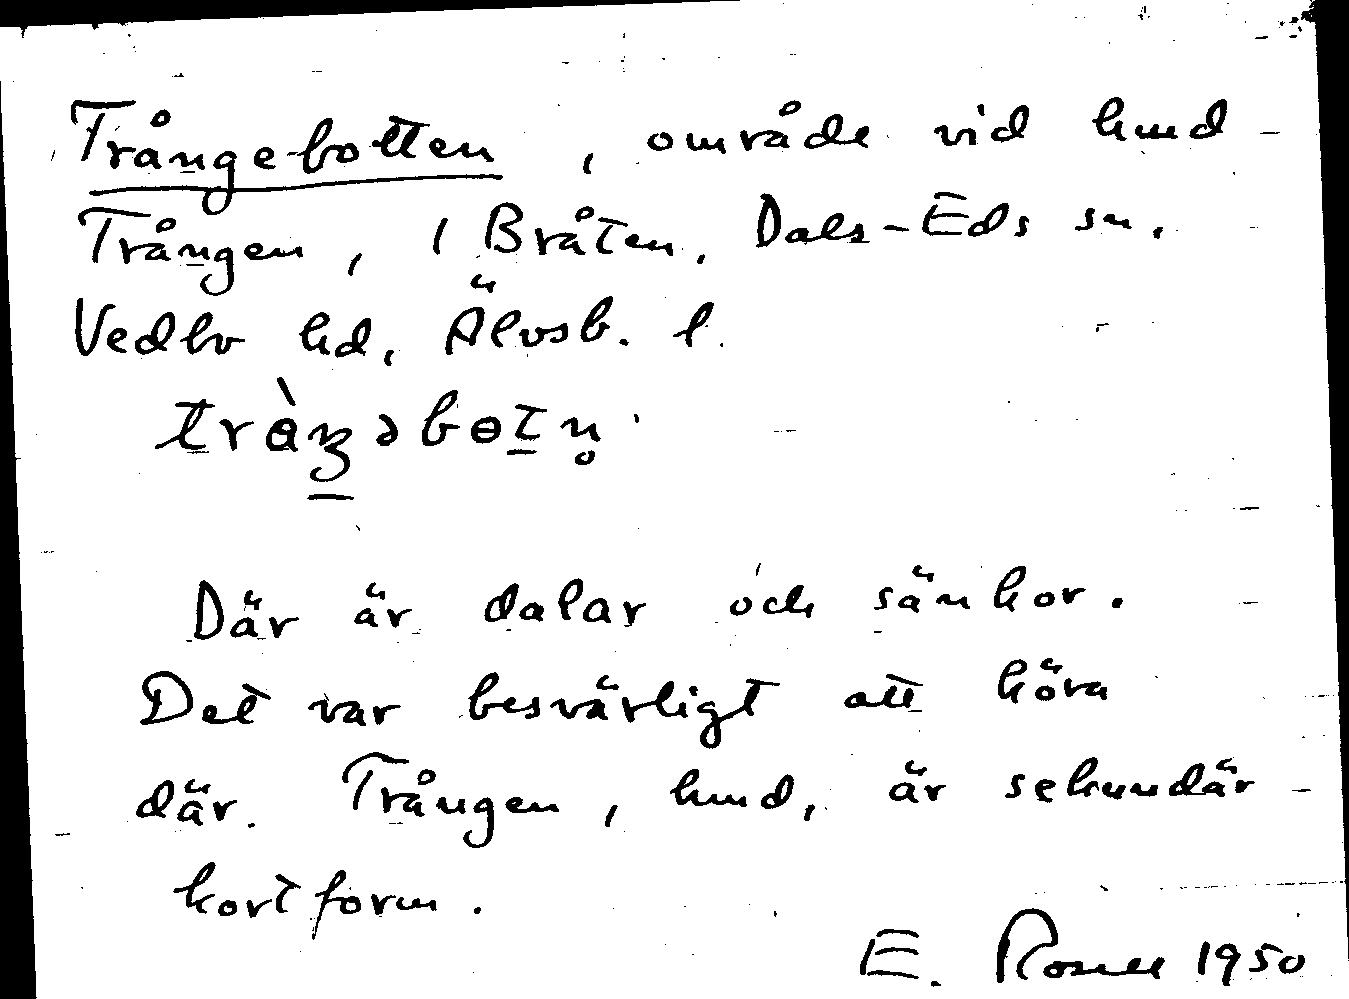 Trångebotten, område vid lmd
Trången, 1 Bråten, Dals-Eds sn,
Vedbo hd, Älvsb. l.
Där är dalar och sänkor.
Det var besvärligt att köra
där. Trången, lmd, är sekundär
kortform.
E. Rosell 1950